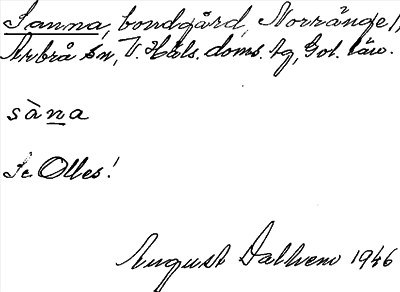 Sanna, bondgård, Norränge 1,
Arbrå sn, V. Häls. doms. tg, Gäl. län.
sàna
Se Olles!
August Dalhem 1946